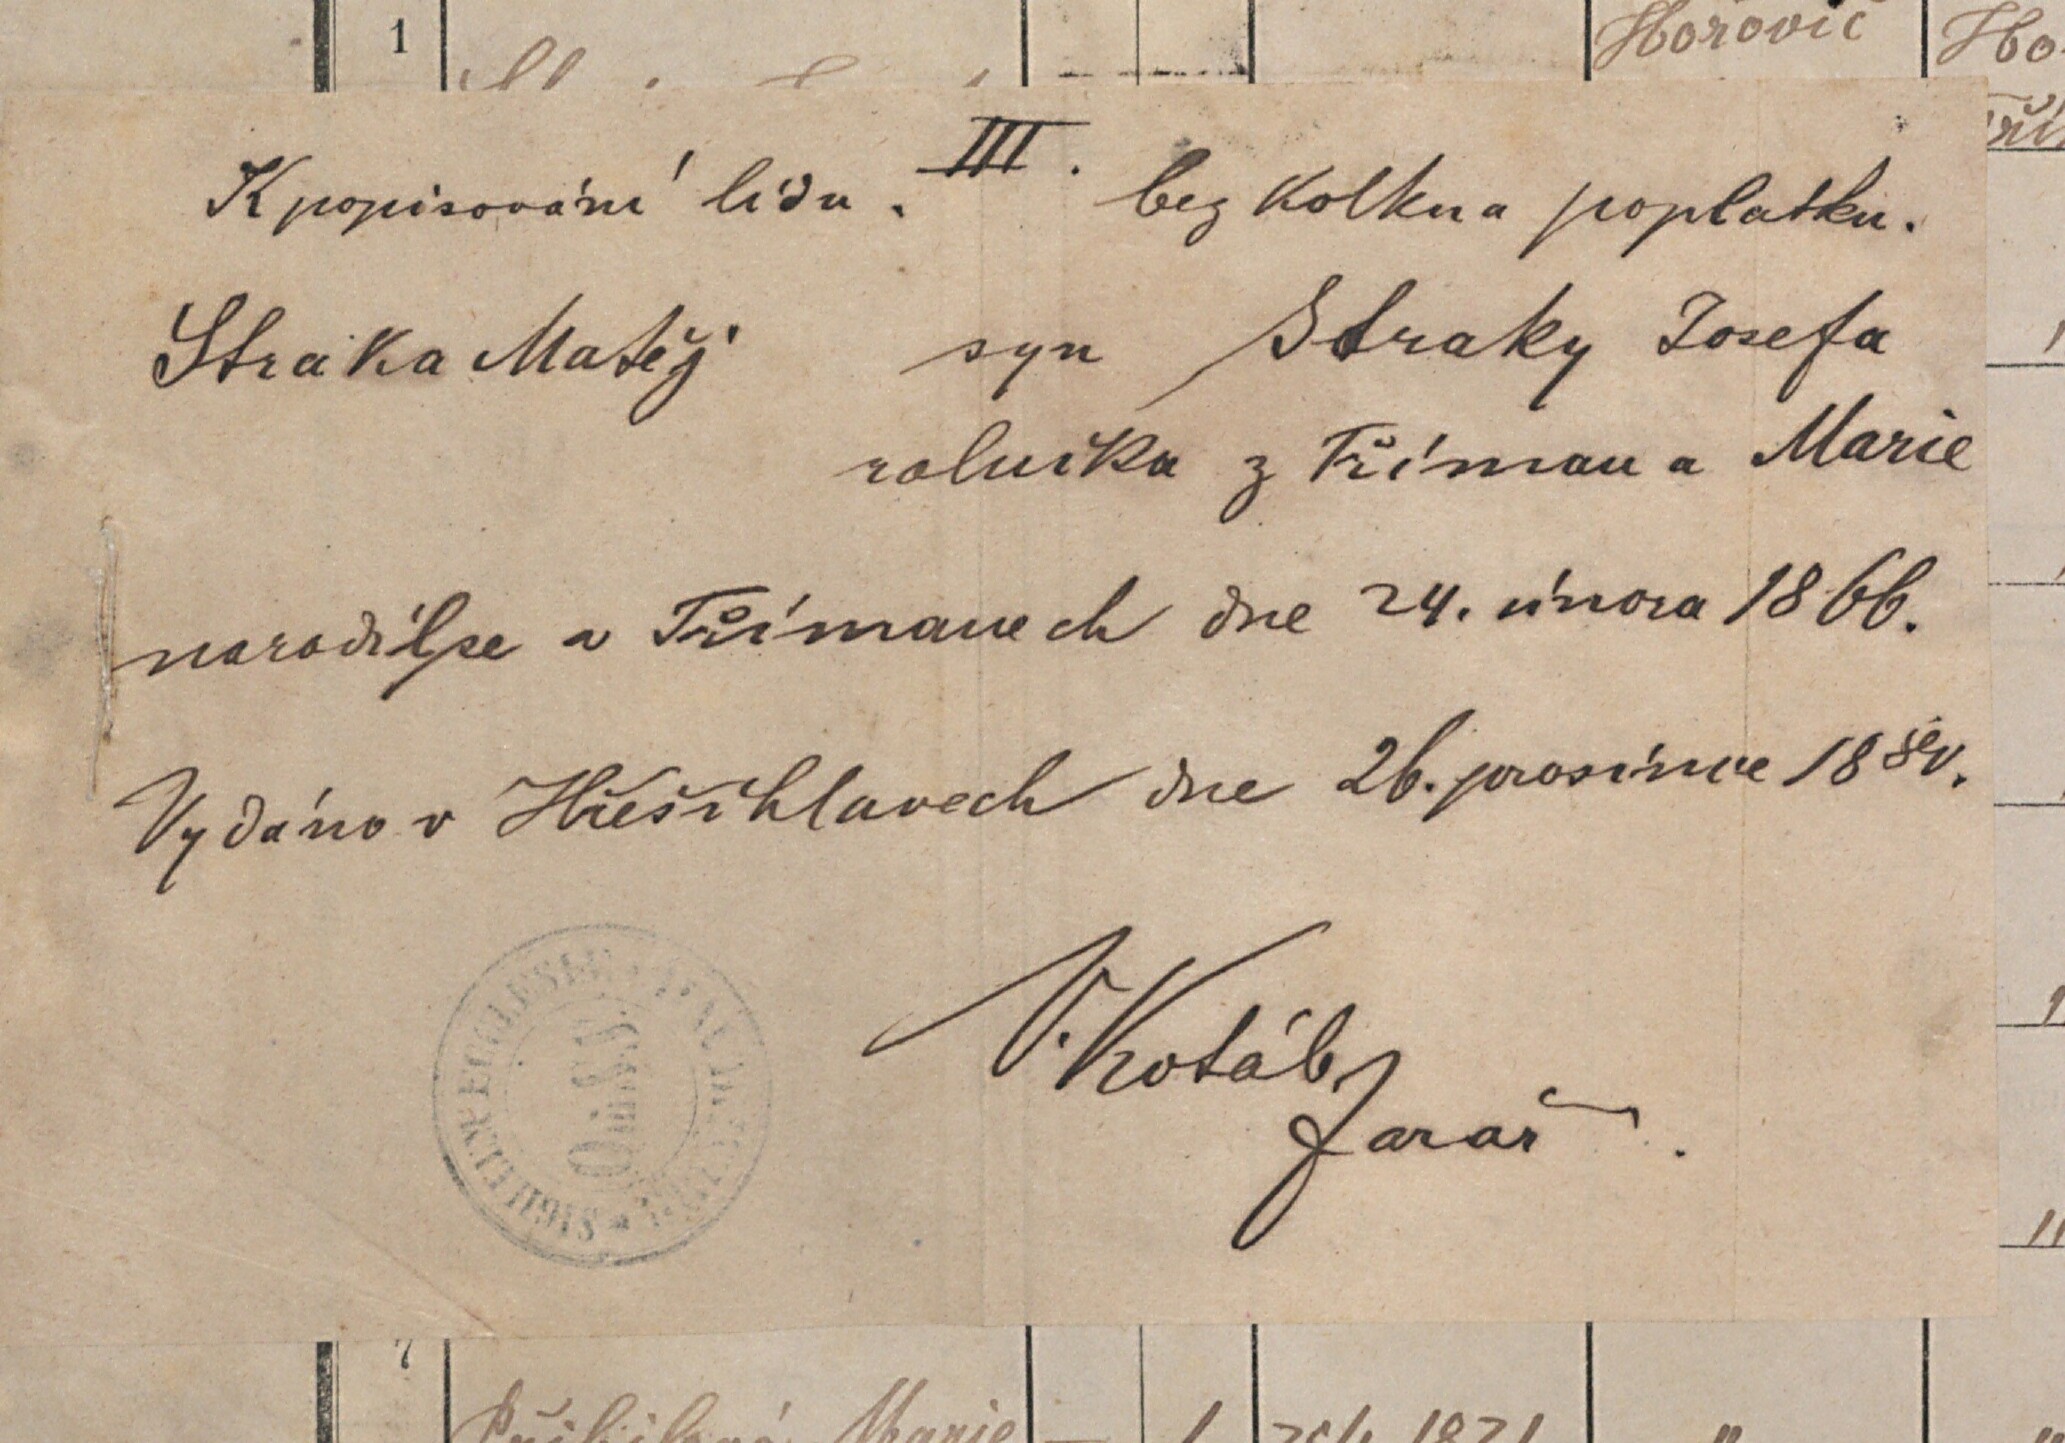 1
Hořovic
Ho
III.
K popisování lidu. bez kolku a poplatku.
Straka Matěj syn Straky Josefa
rolníka z Tříman a Marie
narodil se v Třímanech dne 24. února 1866.
Vydáno v Hřešihlavech dne 26. prosince 18
V. Kotáb
farář.
SIGILLUM ECCLESIAE
7
Marie 1 1871 "